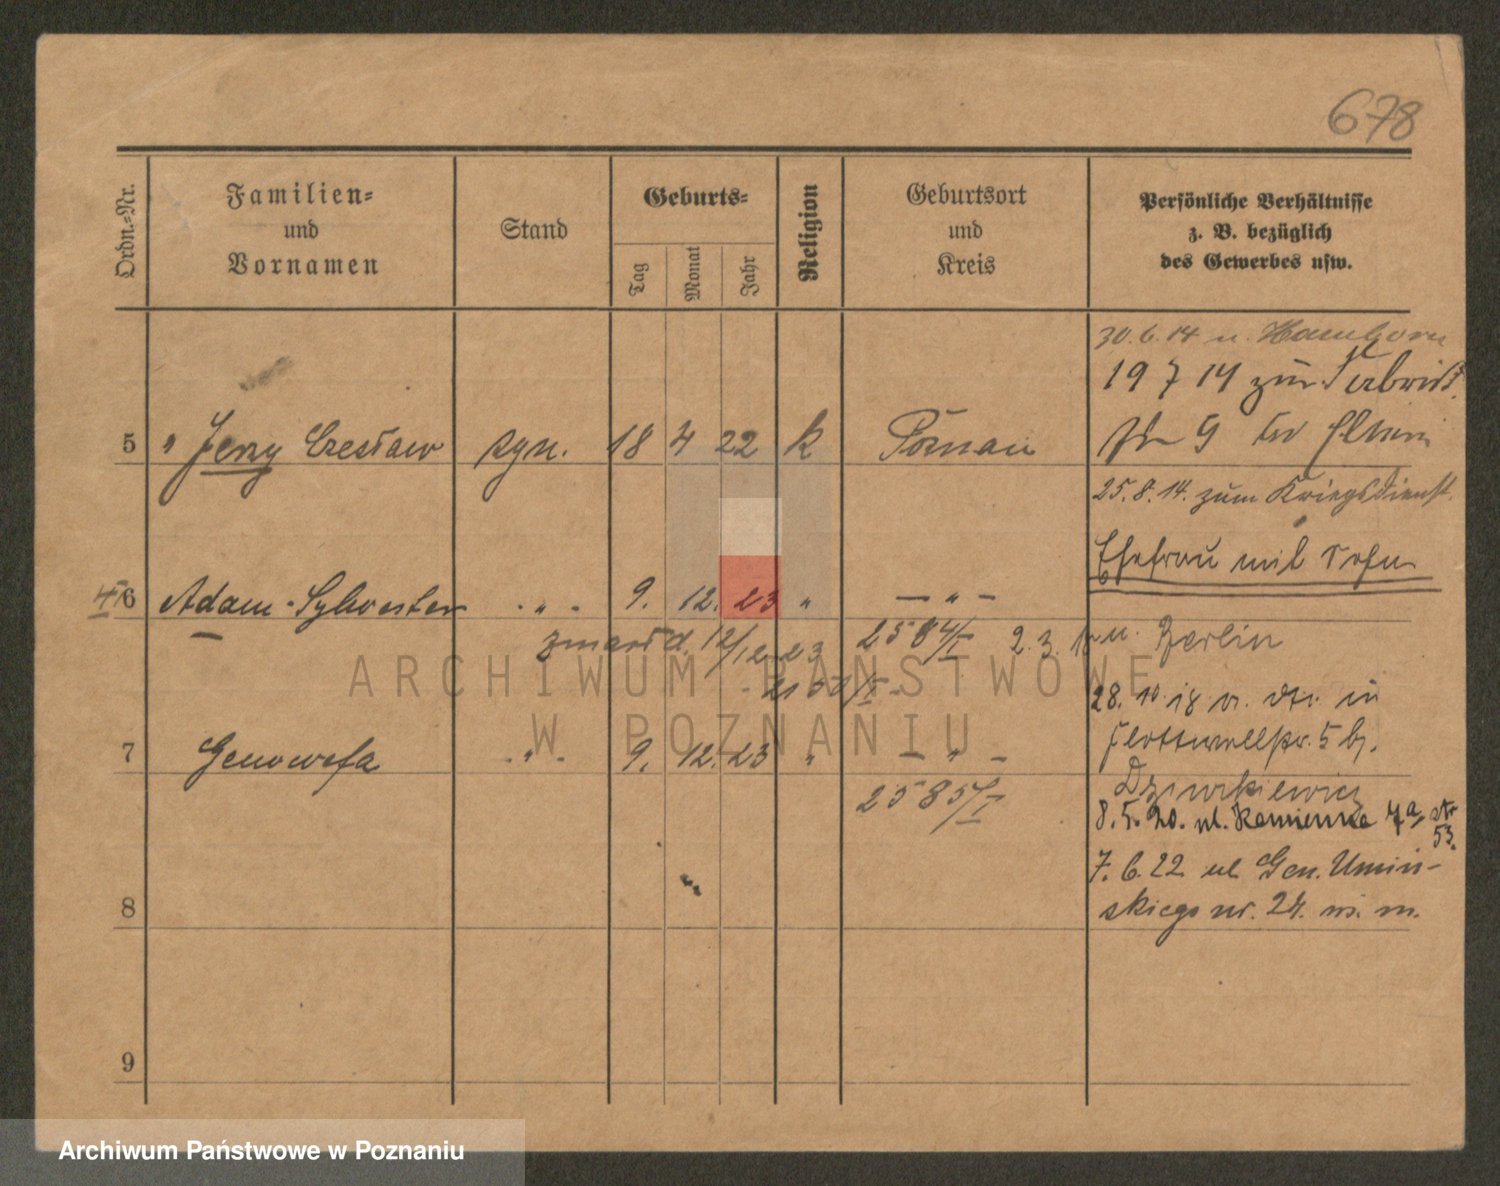 678
Ordn.-Nr.
Familien-
und
Vornamen
Stand
Geburts-
Tag
Monat
Jahr
Religion
Geburtsort
und
Kreis
Persönliche Verhältnisse
z. B. bezüglich
des Gewerbes usw.
30.6.14 n. Hamborn
19 7 14 zur
5 " Jerzy Czesław syn. 18 4 22 k Poznań
25.8.14. zum Kriegsdienst.
Ehefrau mit Sohn
6 Adam-Sylvester " 9. 12. 23 " — " —
zmarł d. 12/12 23 2584/I 2.3. n. Berlin
28.10.18 v. in
Flottwellstr. 5 b.
7 Genowefa " 9. 12. 23 " — " —
2585/I
8.5.20. ul. Kamienna 7a,
53.
7.6.22 ul Gen. Umiń-
8 skiego nr. 24. m. m.
9
ARCHIWUM PAŃSTWOWE
W POZNANIU
Archiwum Państwowe w Poznaniu